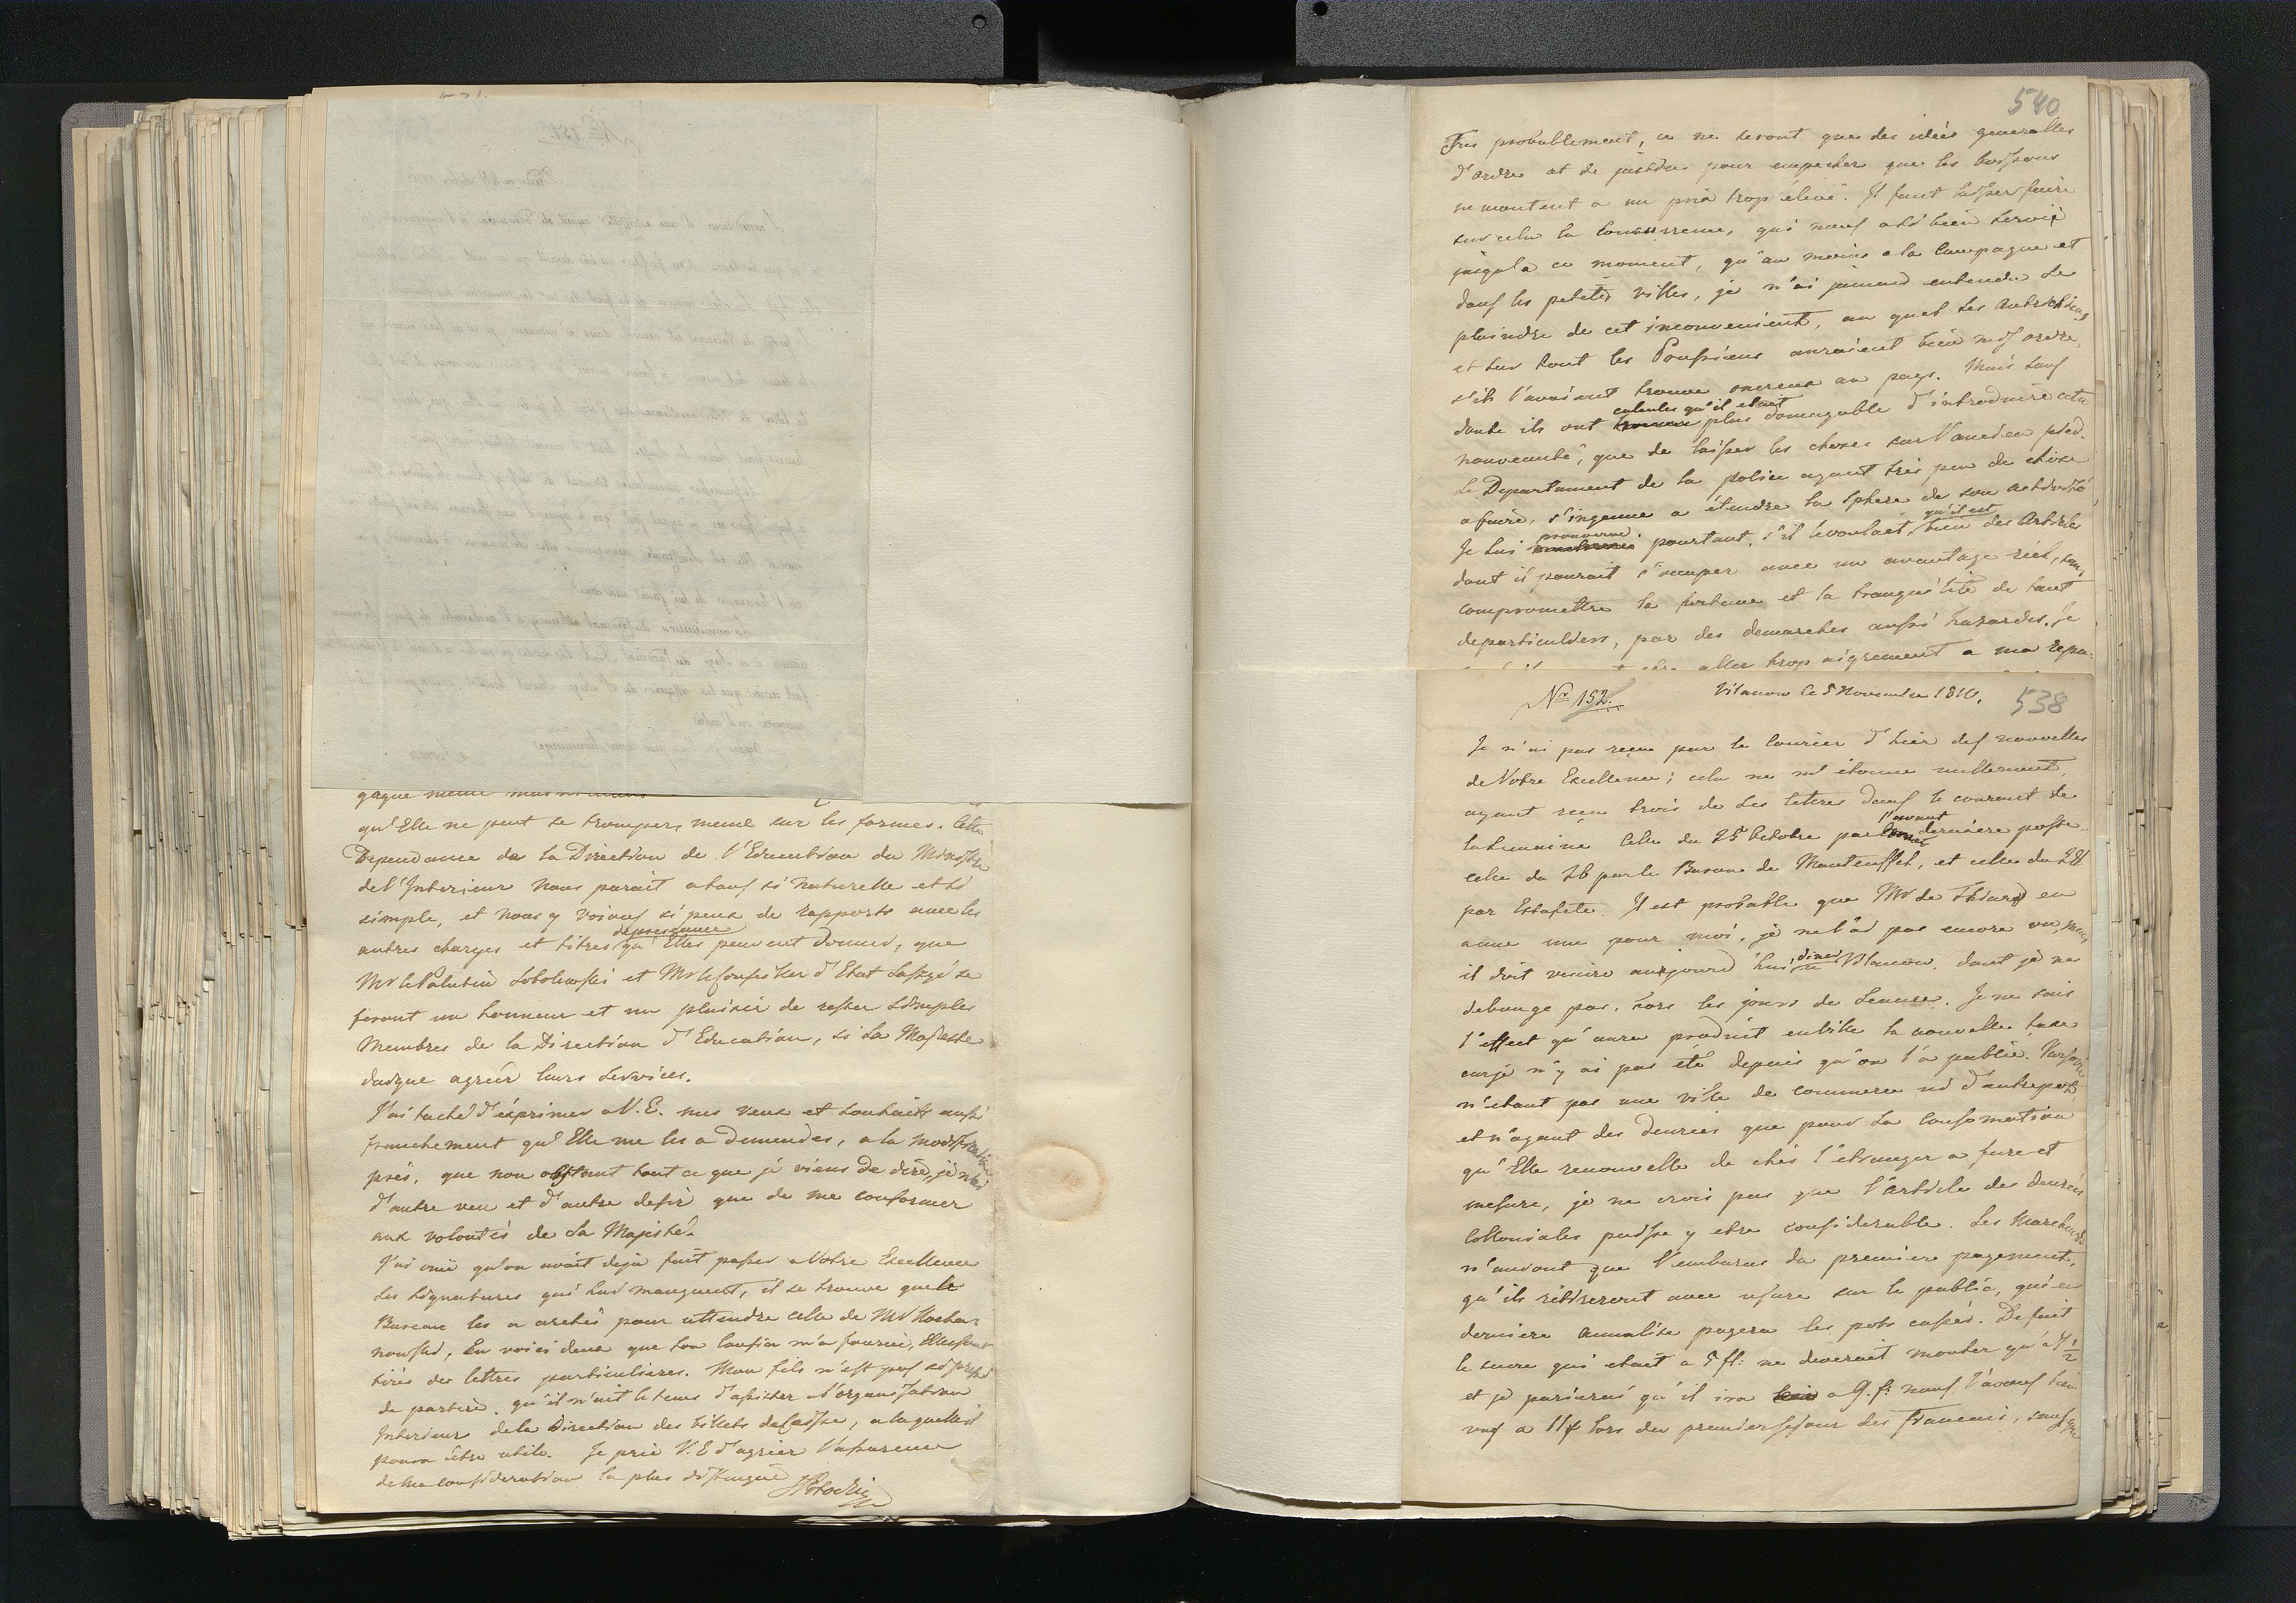 gagne meme
qu'Elle ne peut se tromper, meme sur les formes. Cette
Dependance de la Direction de l'Education du Ministre
de l'Interieur nous parait a tous si naturelle et si
simple, et nous y voions si peux de rapports avec les
autres charges et titres qu'Elles peuvent donner, que
Mr le Palatin Sobolewski et Mr le Conseiller d'Etat
feront un honneur et un plaisir de rester simples
Membres de la Direction d'Education, si Sa Majesté
daigne agréer leurs services.
J'ai taché d'éxprimer a V. E. mes veux et souhaits aussi
franchement qu'Elle me les a demandés, a la
près, que non obstant tout ce que je viens de dire, je n'ai
d'autre veu et d'autre desir que de me conformer
aux volontés de Sa Majesté.
J'ai crüe qu'on avait deja fait passer a Votre Excellence
les signatures qui lui manquent, il se trouve que le
Bureau les a arétés pour attendre celle de Mr
En voici deux que son Cousin m'a fourni, Elles sont
tirés des lettres particulieres. Mon fils n'est pas si pressé
de partir, qu'il n'ait le tems d'assister a l'organisation
Interieur de la Direction des billets de Caisse, a laquelle il
poura être utile. Je prie V. E d'agréer l'assurence
de ma consideration la plus distinguée
SPotocki
540
Tres probablement, ce ne seront que des idées generalles
d'ordre et de justice pour empecher que les boissons
ne montent a un prix trop élevé. Il faut laisser faire
sur cela la concurrence, qui nous a si bien servie
jusqu'a ce moment, qu'au moins a la Campagne et
dans les petites villes, je n'ai jamais entendu se
plaindre de cet inconvenient, au quel les Autrichiens
et sur tout les Prussiens auraient bien mis ordre,
s'ils l'avaient trouvé onereux au pays. Mais sans
calculés qu'il etait
doute ils ont plus domageable d'introduire cette
nouveauté, que de laisser les choses sur l'ancien pied.
Le Departament de la police ayant très peu de chose
a faire, s'ingenue a étendre la sphere de son activité
prouverai qu'il est
Je lui pourtant, s'il le voulait, bien des Article
dont il pourait s'occuper avec un avantage réel, sans
compromettre la fortune et la tranquilité de tant
de particuliers, par des demarches aussi hazardés. Je
aller trop aigrement a ma repu-
Nr 152. Vilanow le 5 Novembre 1810. 538
Je n'ai pas reçu par le Courier d'hier des nouvelles
de Votre Excellence; cela ne m'étonne nullement,
ayant reçu trois de ses lettres dans le courant de
l'avant
la semaine. Celle du 25 Octobre par derniere poste
celle du 26 par le Baron de Manteuffel, et celle du 28
par Estafete. Il est probable que Mr de Thiard en
aura une pour moi, je ne l'ai pas encore vu, mais
il doit venire aujourd'hui diner a Vilanow, dont je ne
debouge pas, hors les jours de Seance. Je ne sais
l'effect qu'aura produit en ville la nouvelle taxe
car je n'y ai pas été depuis qu'on l'a publié. Varsovie
n'etant pas une ville de commerce ni d'entrepot,
et n'ayant des denrées que pour sa consomation
qu'Elle renouvelle de chés l'etranger a fure et
mesure, je ne crois pas que l'article des denrées
Colloniales puisse y etre considerable. Les Marchands
n'auront que l'embaras du premier payement,
qu'ils retireront avec usure sur le public, qui en
derniere annalise payera les pots cassés. De fait
le sucre qui etait a 5 fl: ne deverait monter qu'a 7 1/2
et je parierai qu'il ira a 9. fl: nous l'avons bien
vus a 11 fl lors du premier sejour des Francais, sans que